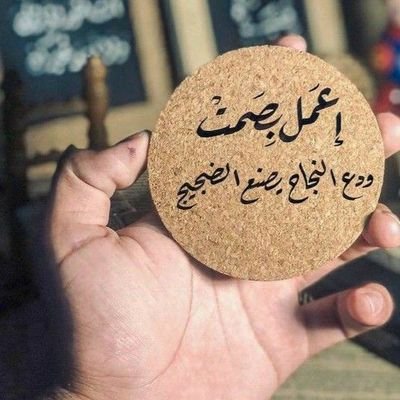 إعمَل بِصَمتْ
ودع النجاح يصنع الضجيج